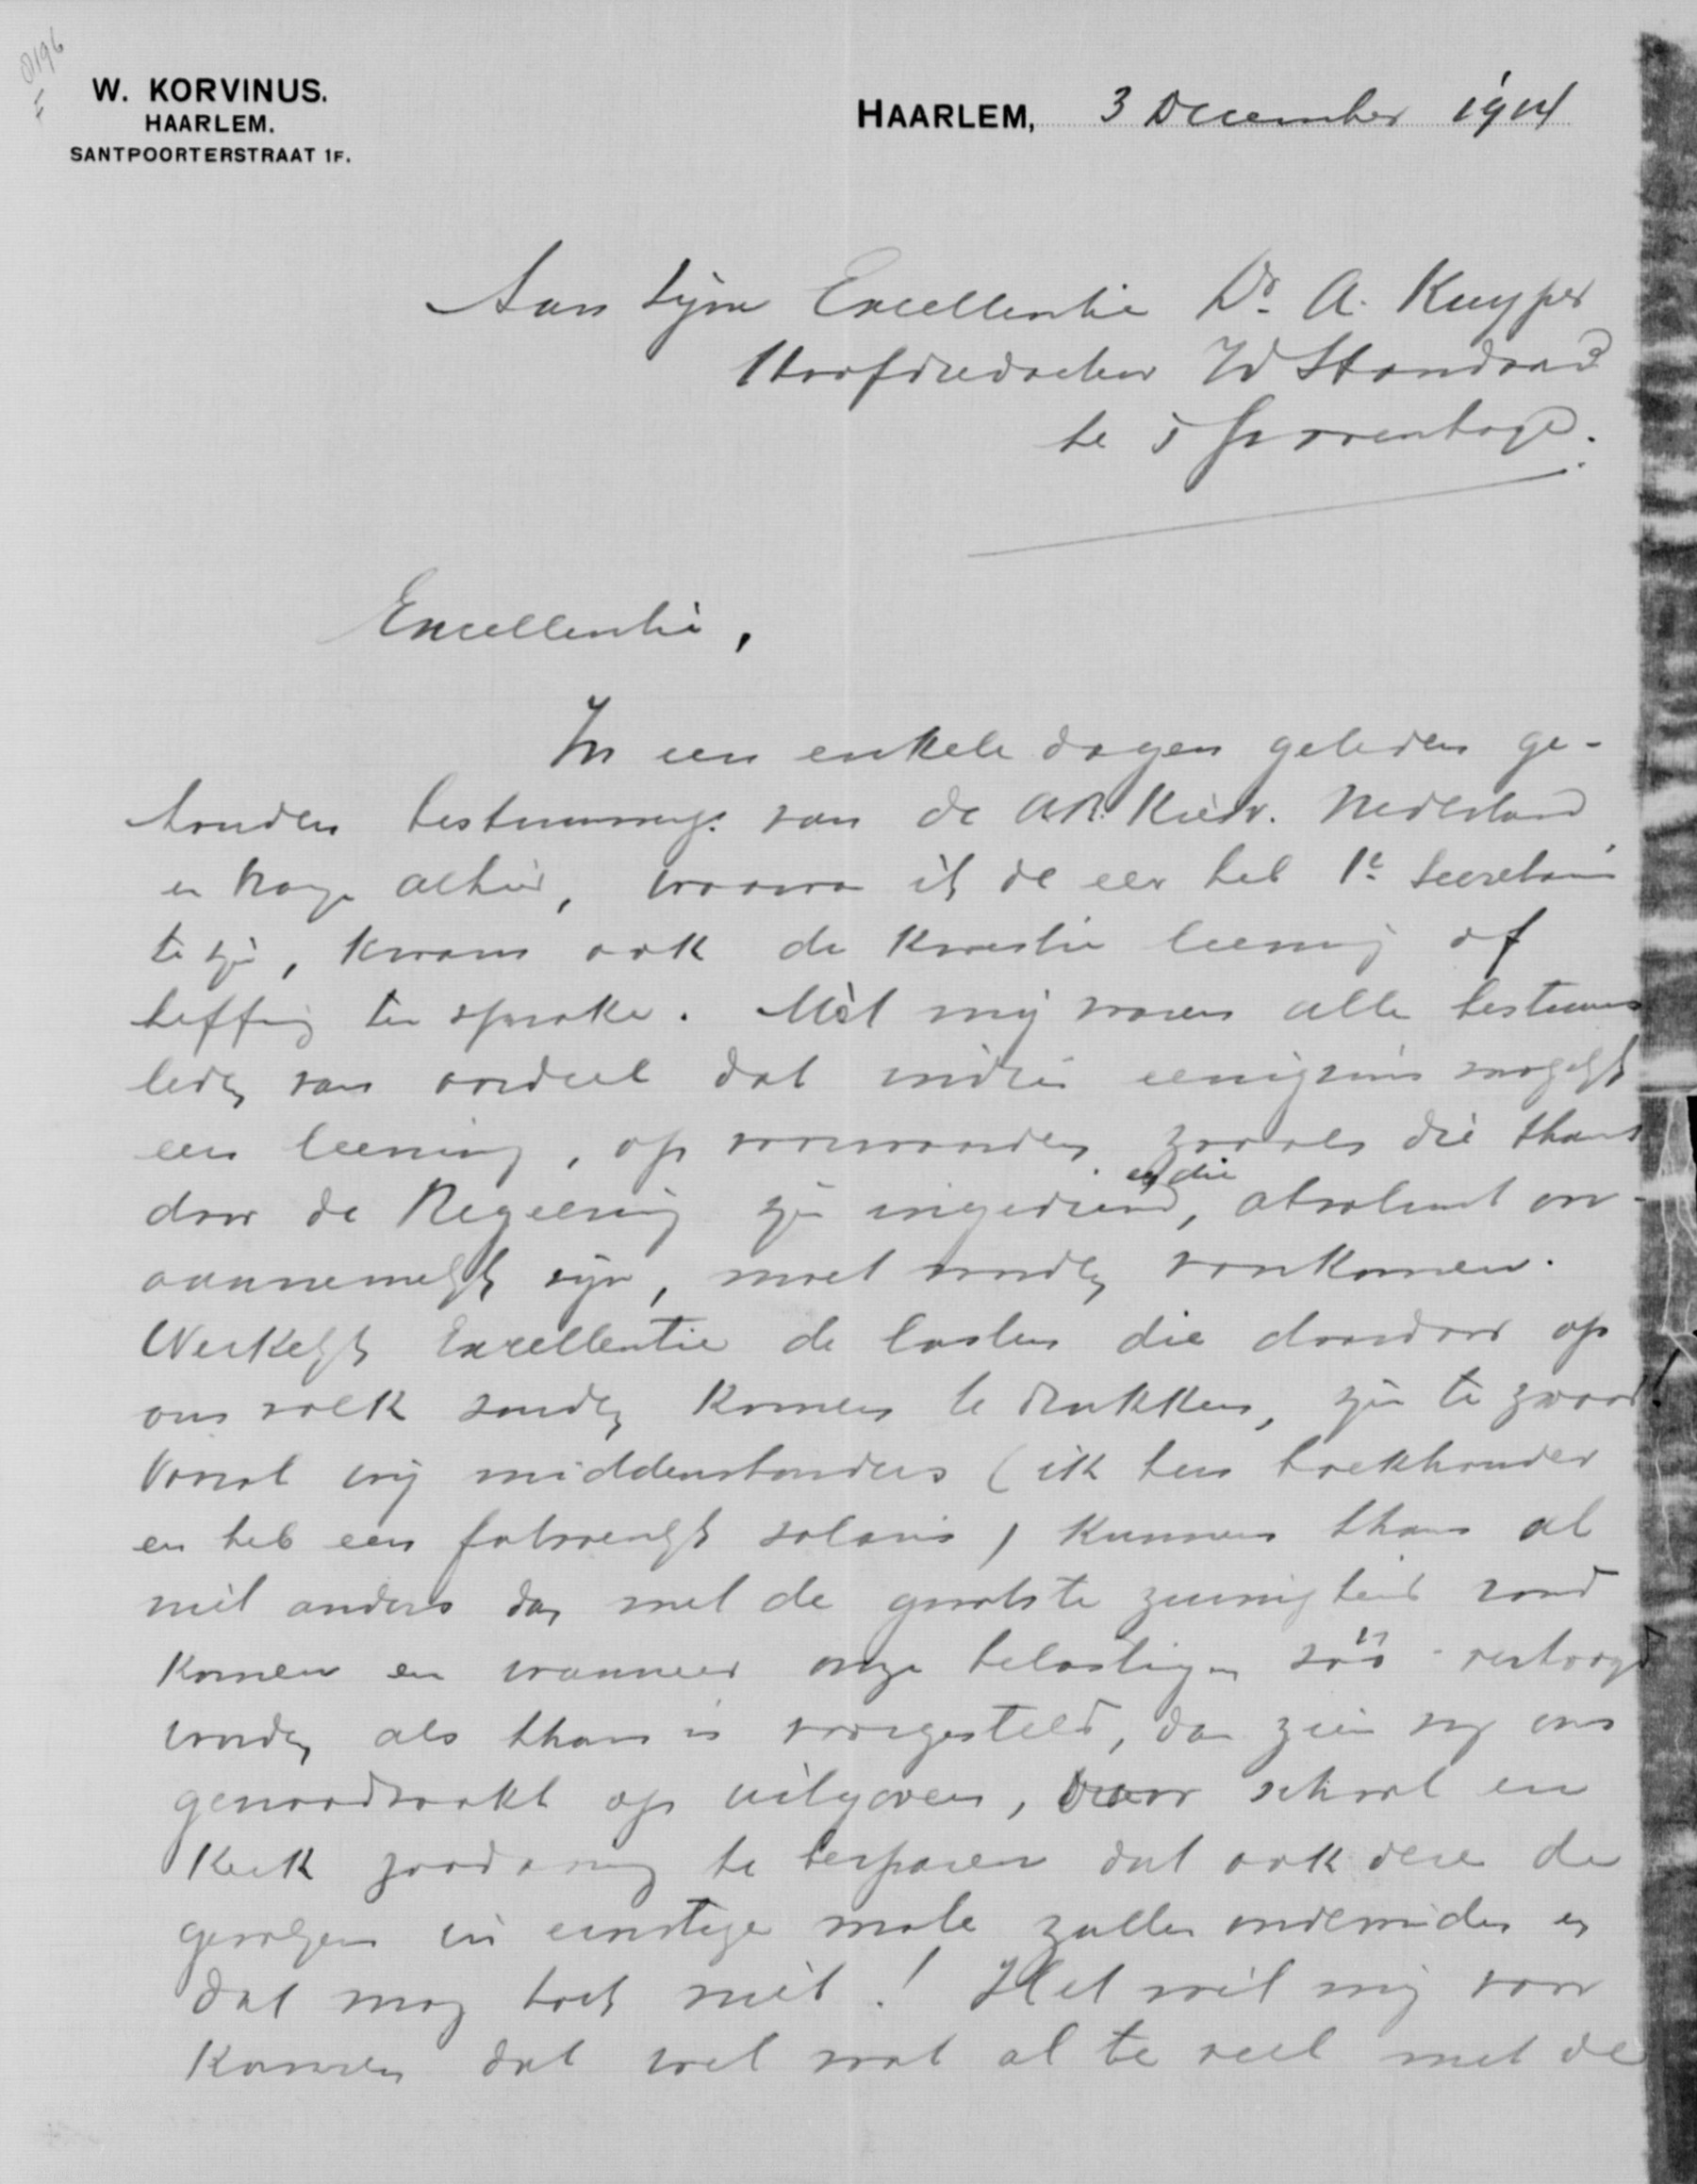 0196
F
W. KORVINUS.
HAARLEM.
SANTPOORTERSTRAAT 1F.
HAARLEM, 3 December 1914
Aan Zijne Excellentie Dr. A. Kuyper
Hoofdredacteur Standaard
te 's Gravenhage.
Excellentie,
In een enkele dagen geleden ge-
houden bestuursverg. van de A.R. Kiesv. Nederland
en Oranje alhier, waarvan ik de eer heb 1e Secretaris
te zijn, kwam ook de kwestie leening of
heffing ter sprake. Mèt mij waren alle bestuurs
leden van oordeel dat indien eenigszins mogelijk
een leening, op voorwaarden zooals die thans
door de Regeering zijn ingediend, en die absoluut on-
aannemelijk zijn, moet worden voorkomen.
Werkelijk Excellentie de lasten die daardoor op
ons volk zouden komen te drukken, zijn te zwaar!
Vooral wij middenstanders (ik ben boekhouder
en heb een fatsoenlijk salaris) kunnen thans al
niet anders dan met de grootste zuinigheid rond
komen en wanneer onze belastingen zóó verhoogd
worden als thans is voorgesteld, dan zien wij ons
genoodzaakt op uitgaven, voor school en
Kerk zoodanig te besparen dat ook deze de
gevolgen in ernstige mate zullen ondervinden en
dat mag toch niet! Het wil mij voor
komen dat wel wat al te veel met de